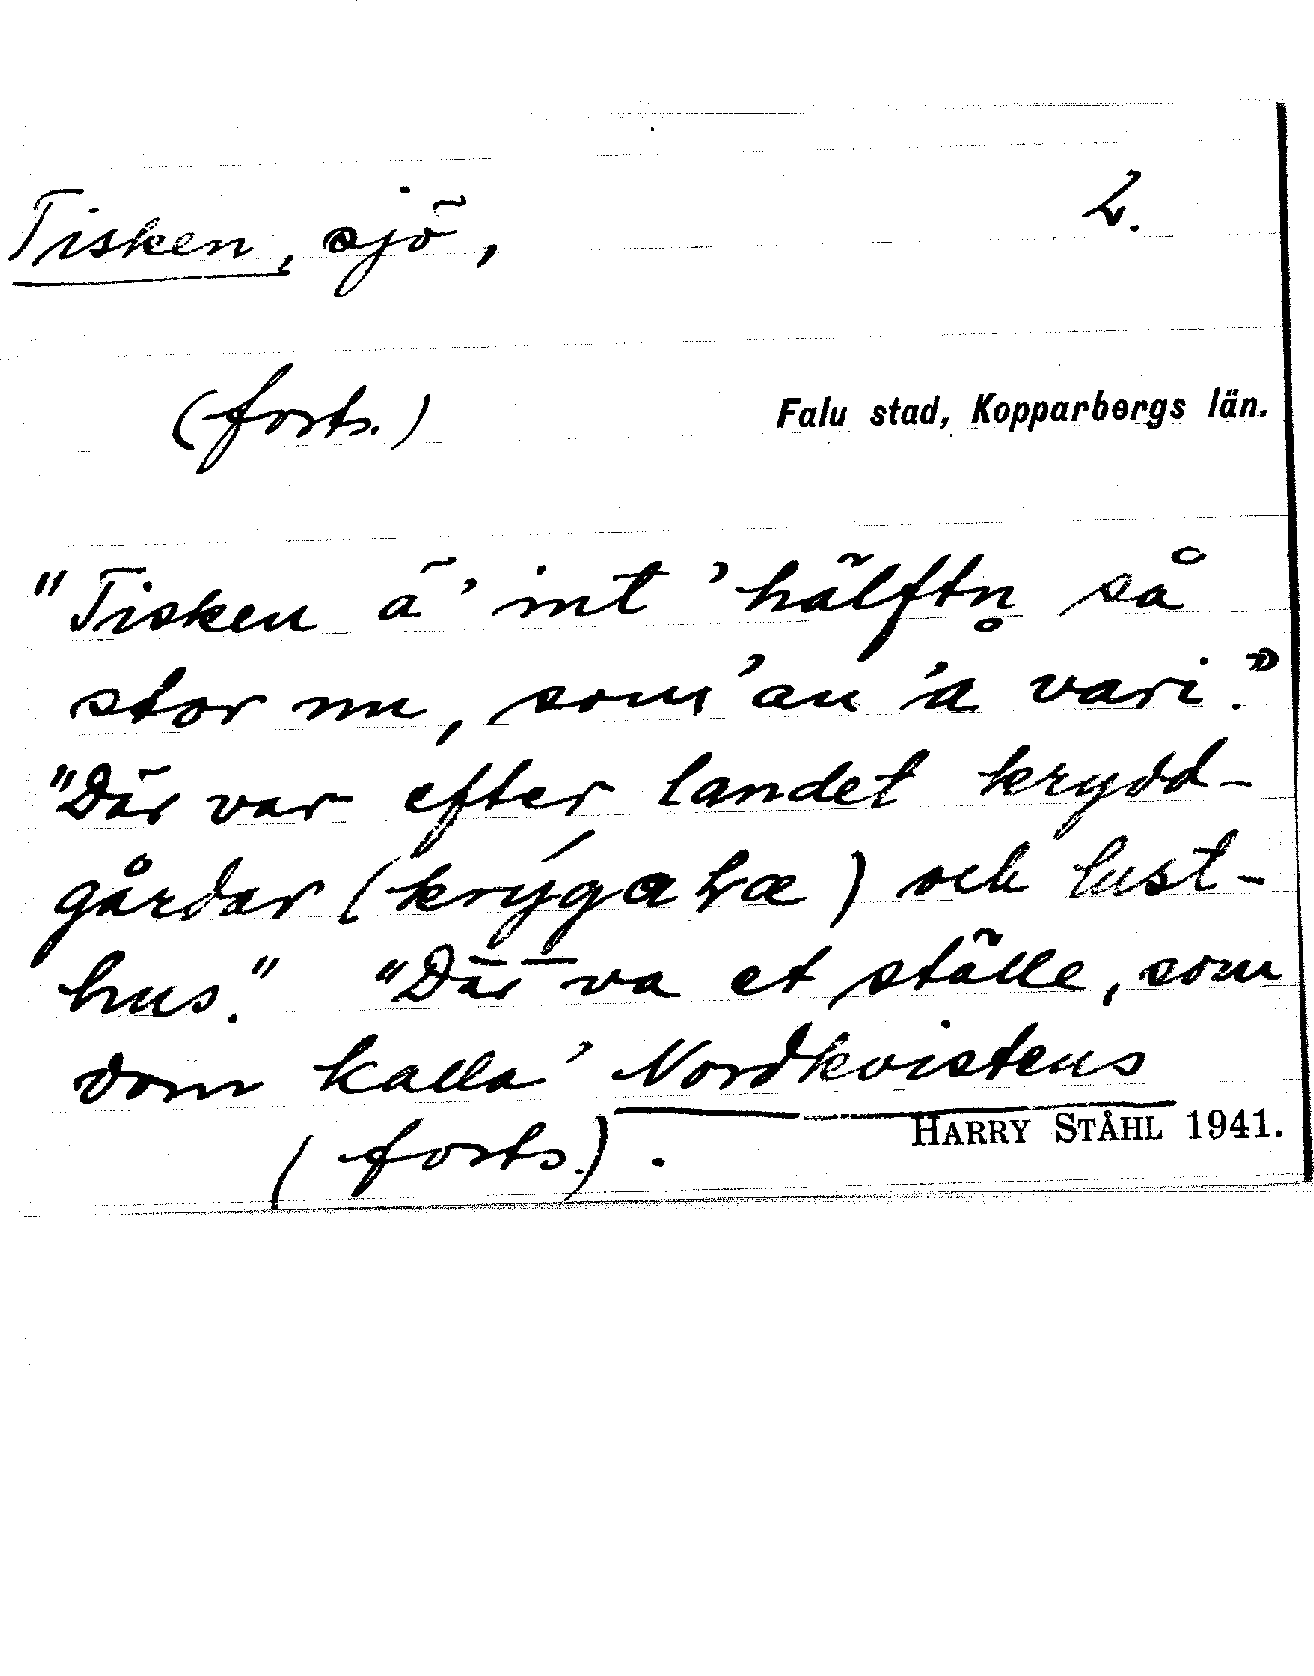 Tisken, sjö, 2.
(forts.) Falu stad, Kopparbergs län.
"Tisken ä' int 'hälftn̥ så
stor nu, som 'an 'a vari."
"Där var efter landet krydd-
gårdar ( ) och lust-
hus." "Där va et ställe, som
dom kalla' Nordkvistens
(forts.).
HARRY STÅHL 1941.